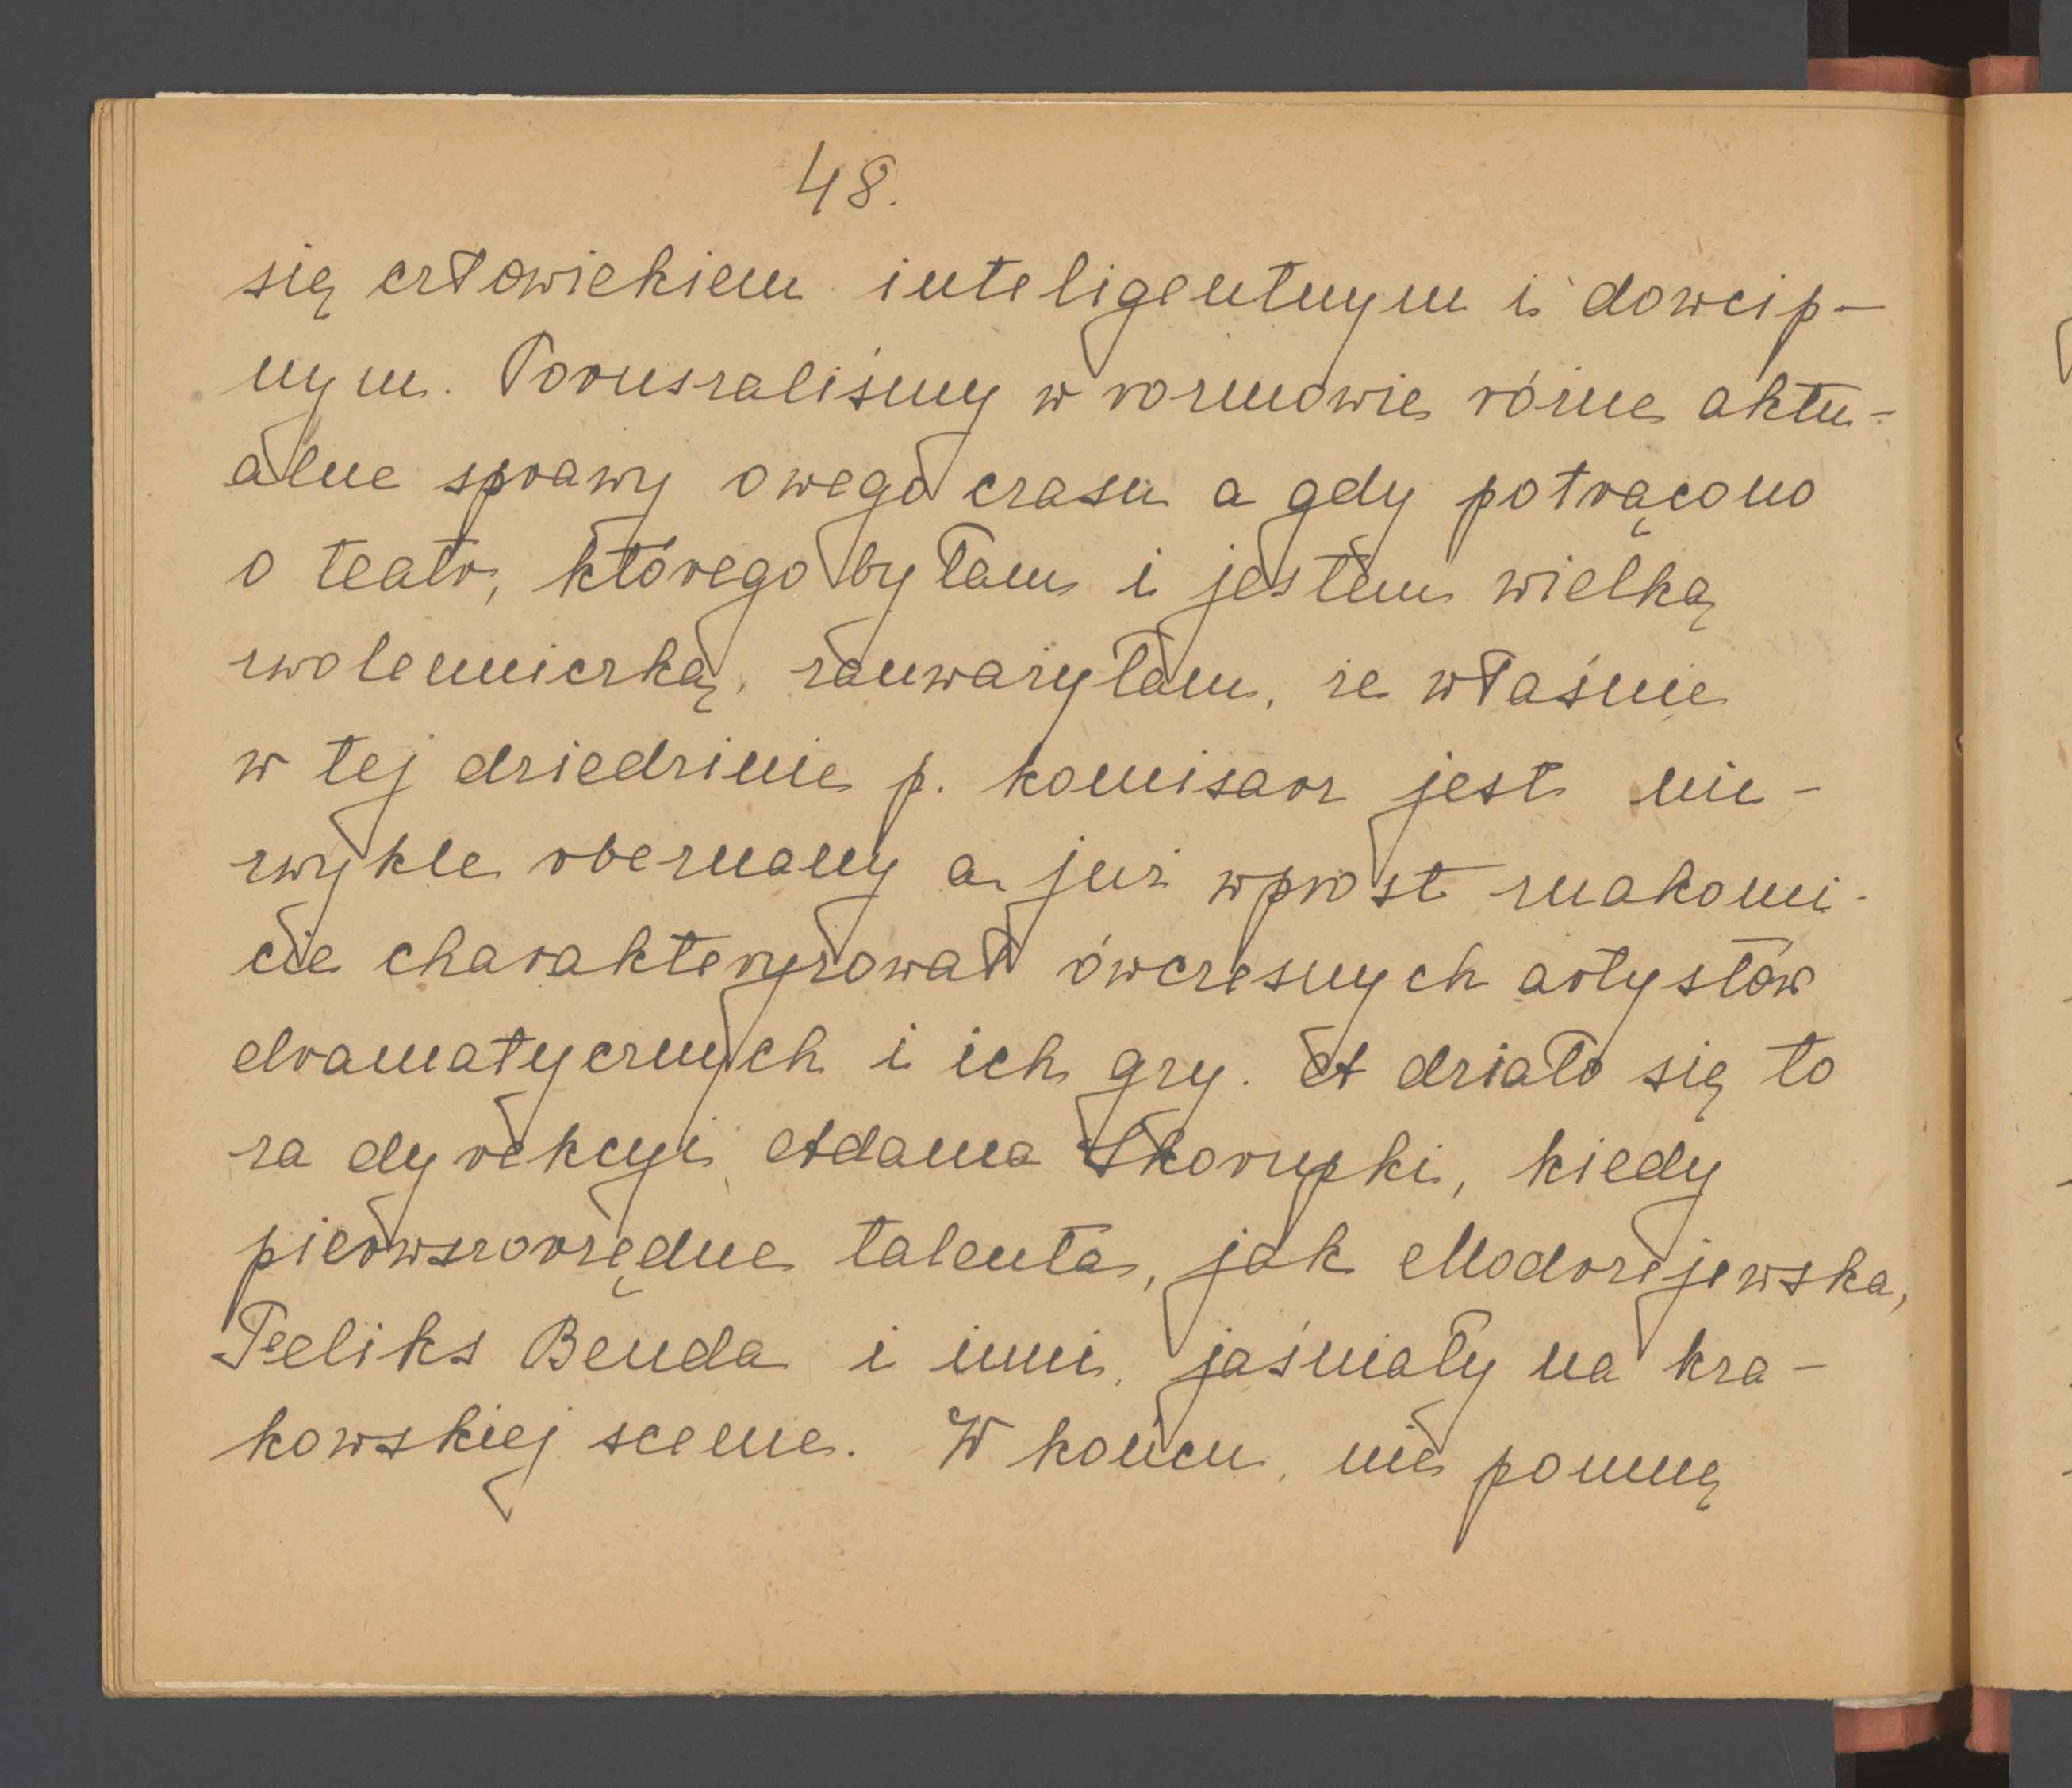 48.
się człowiekiem inteligentnym i dowcip-
nym. Poruszaliśmy w rozmowie różne aktu-
alne sprawy owego czasu a gdy potrącono
o teatr, którego byłam i jestem wielką
zwolenniczką, zauważyłam, że właśnie
w tej dziedzinie p. komisarz jest nie-
zwykle obeznany a już wprost znakomi-
cie charakteryzował ówczesnych artystów
dramatycznych i ich gry. A działo się to
za dyrekcyi Adama Skorupki, kiedy
pierwszorzędne talenta, jak Modrzejewska,
Feliks Benda i inni, jaśniały na kra-
kowskiej scenie. W końcu, nie pomnę